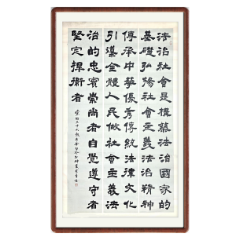 法治社會是構築法治國家的
基礎弘揚社會主義法治精神
傳承中華優秀傳統法律文化
引導全體人民做社會主義法
治的忠實崇尚者自覺遵守者
堅定捍衛者